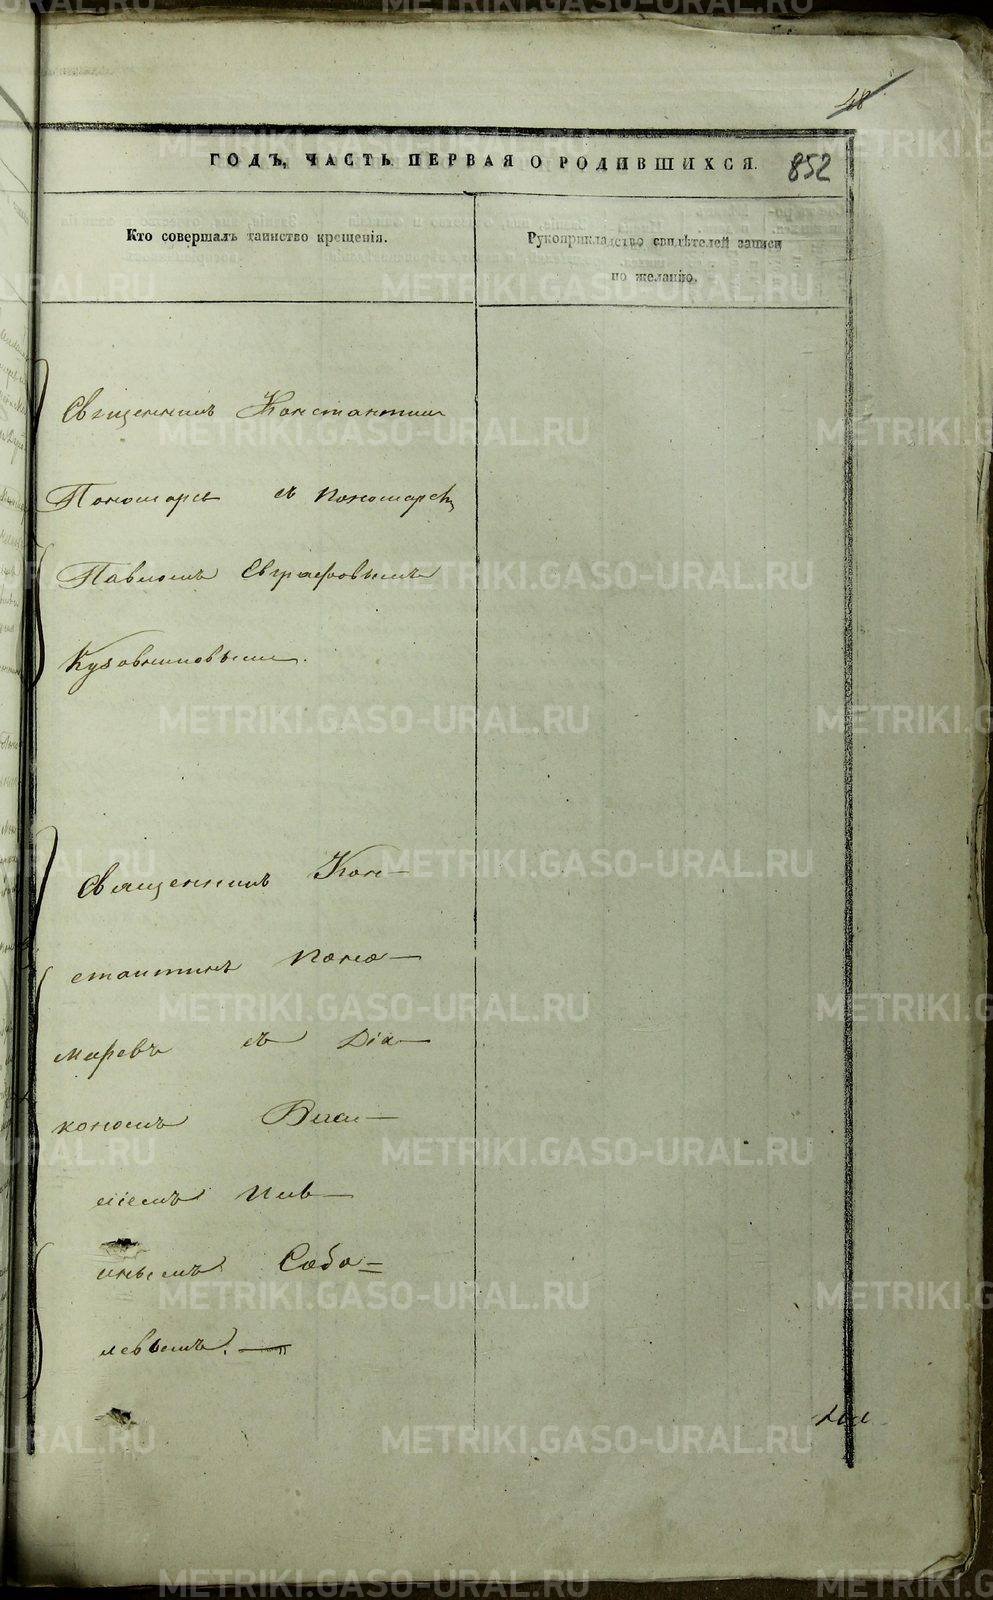 48
ГОДЪ, ЧАСТЬ ПЕРВАЯ О РОДИВШИХСЯ.
852
Кто совершалъ таинство крещенія.
Рукоприкладство свидѣтелей записи
по желанію.
Священникъ Константин
Пономаре съ пономаремъ
Павломъ Евграфовымъ
Кузовниковымъ.
Священникъ Кон-
стантинъ Поно-
маревъ съ Діа-
кономъ
Собо=
левымъ.
METRIKI.GASO-URAL.RU